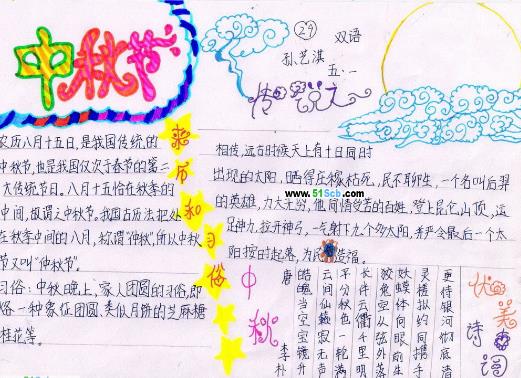 中秋节
29
双语
孙艺淇
五·一
传说之一
农历八月十五日,是我国传统的
中秋节,也是我国仅次于春节的第二
大传统节日。八月十五恰在秋季的
中间,故谓之中秋节。我国古历法把处
在秋季中间的八月,称谓“仲秋”,所以中秋
节又叫“仲秋节”。
习俗:中秋晚上,家人团圆的习俗,即
烙一种象征团圆、类似月饼的芝麻糖
桂花等。
来历和习俗
相传,远古时候天上有十日同时
出现的太阳,晒得庄稼枯死,民不聊生,一个名叫后羿
的英雄,力大无穷,他同情受苦的百姓,登上昆仑山顶,运
足神力,拉开神弓,一气射下九个多太阳,并严令最后一个太
阳按时起落,为民造福。
www.51Scb.com
中秋
唐 李朴
皓魄当空宝镜升
云间仙籁寂无声
平分秋色一轮满
长伴云衢千里明
狡兔空从弦外落
妖蟆休向眼前生
灵槎拟约同携手
更待银河彻底清
优美诗词